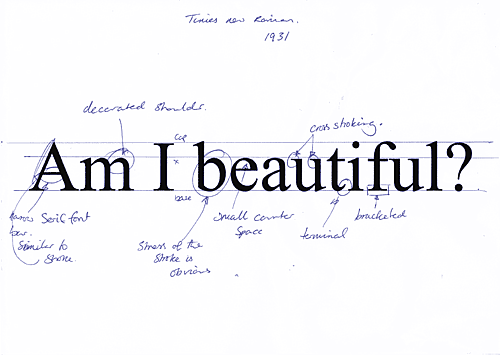 Times new Roman.
1931
decorated shoulder.
cross stroking.
cap
x
Am I beautiful?
base
Serif font
bar.
Similar to
Stroke.
Stress of the
stroke is
obvious
Small counter
Space
terminal
bracketed